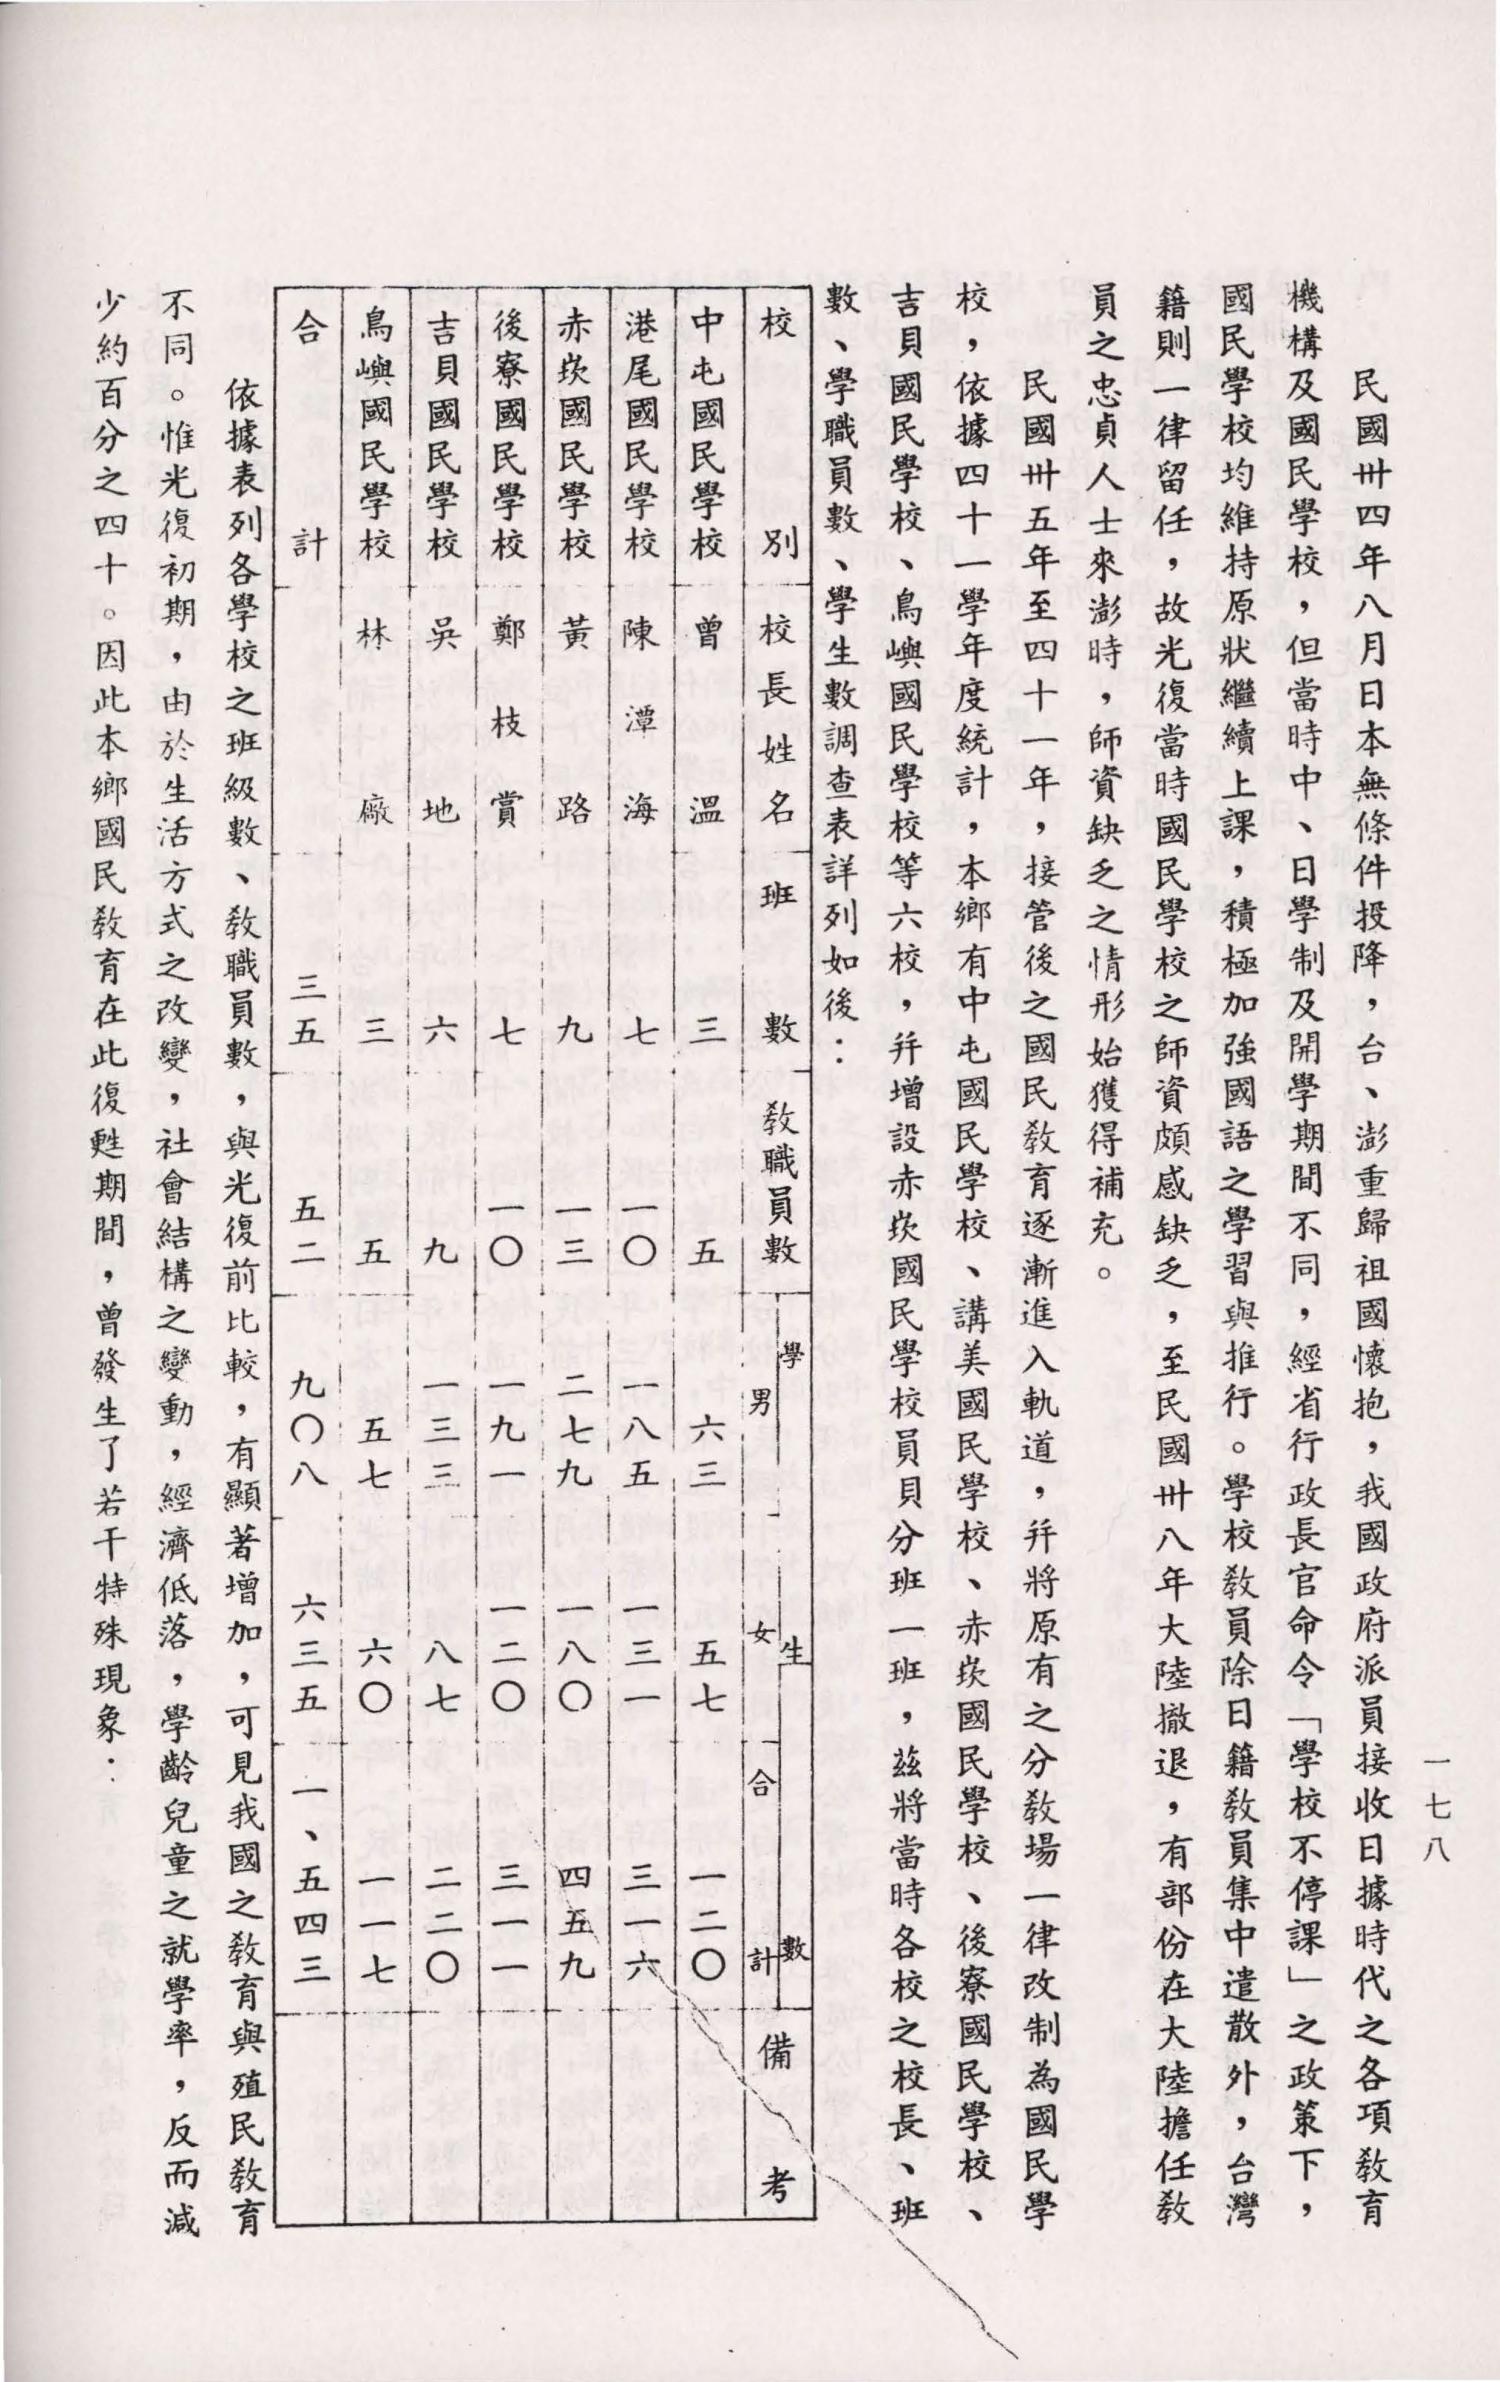 一七八
民國卅四年八月日本無條件投降，台、澎重歸祖國懷抱，我國政府派員接收日據時代之各項教育
機構及國民學校，但當時中、日學制及開學期間不同，經省行政長官命令「學校不停課」之政策下，
國民學校均維持原狀繼續上課，積極加強國語之學習與推行。學校教員除日籍教員集中遣散外，台灣
籍則一律留任，故光復當時國民學校之師資頗感缺乏，至民國卅八年大陸撤退，有部份在大陸擔任教
員之忠貞人士來澎時，師資缺乏之情形始獲得補充。
民國卅五年至四十一年，接管後之國民教育逐漸進入軌道，幷將原有之分教場一律改制為國民學
校，依據四十一學年度統計，本鄉有中屯國民學校、講美國民學校、赤崁國民學校、後寮國民學校、
吉貝國民學校、鳥嶼國民學校等六校，幷增設赤崁國民學校員貝分班一班，茲將當時各校之校長、班
數、學職員數、學生數調查表詳列如後：
校別 校長姓名 班數 教職員數 學生數 男 女 合計 備考
中屯國民學校 曾溫 三 五 六三 五七 一二〇
港尾國民學校 陳潭海 七 一〇 一八五 一三一 三一六
赤崁國民學校 黃路 九 一三 二七九 一八〇 四五九
後寮國民學校 鄭枝賞 七 一〇 一九一 一二〇 三一一
吉貝國民學校 吳地 六 九 一三三 八七 二二〇
鳥嶼國民學校 林廠 三 五 五七 六〇 一一七
合計 三五 五二 九〇八 六三五 一、五四三
依據表列各學校之班級數、教職員數，與光復前比較，有顯著增加，可見我國之教育與殖民教育
不同。惟光復初期，由於生活方式之改變，社會結構之變動，經濟低落，學齡兒童之就學率，反而減
少約百分之四十。因此本鄉國民教育在此復甦期間，曾發生了若干特殊現象：